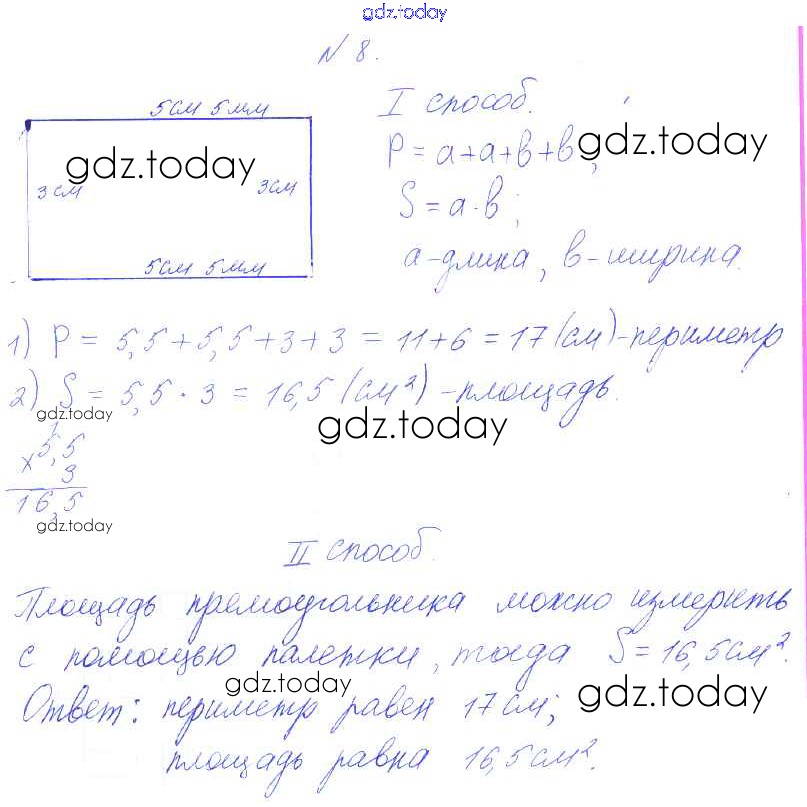 gdz.today
№ 8.
5см 5мм
3см
3см
5см 5мм
gdz.today
I способ.
P = a+a+в+в,
gdz.today
S = a·в;
a-длина, в-ширина.
1) P = 5,5+5,5+3+3 = 11+6 = 17 (см)-периметр
2) S = 5,5 · 3 = 16,5 (см²) -площадь.
gdz.today
gdz.today
1
× 5,5
3
16,5
gdz.today
II способ.
Площадь прямоугольника можно измерить
с помощью палетки, тогда S=16,5см².
gdz.today
gdz.today
Ответ: периметр равен 17см;
площадь равна 16,5см².